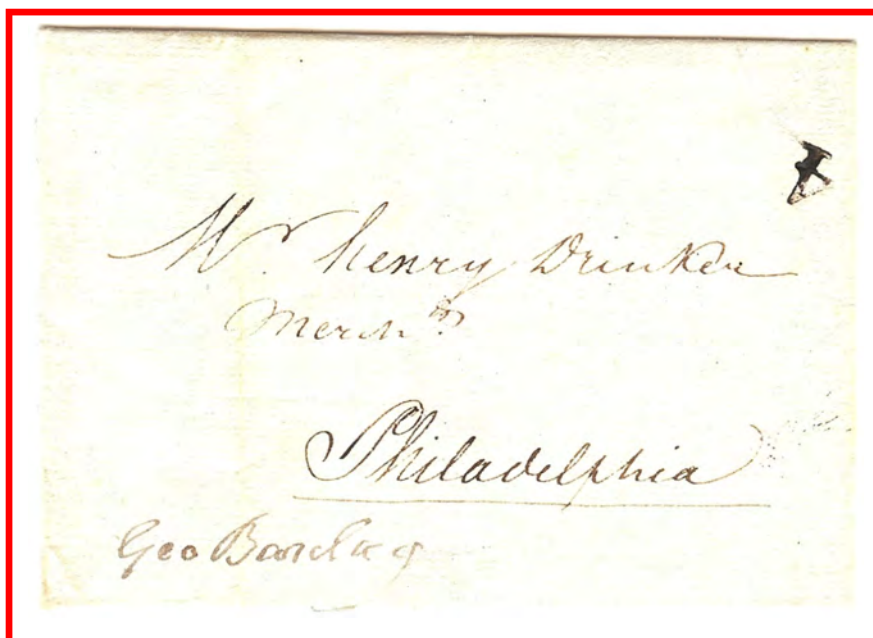 Mr. Henry Drinker
Merchtt.
Philadelphia
Geo